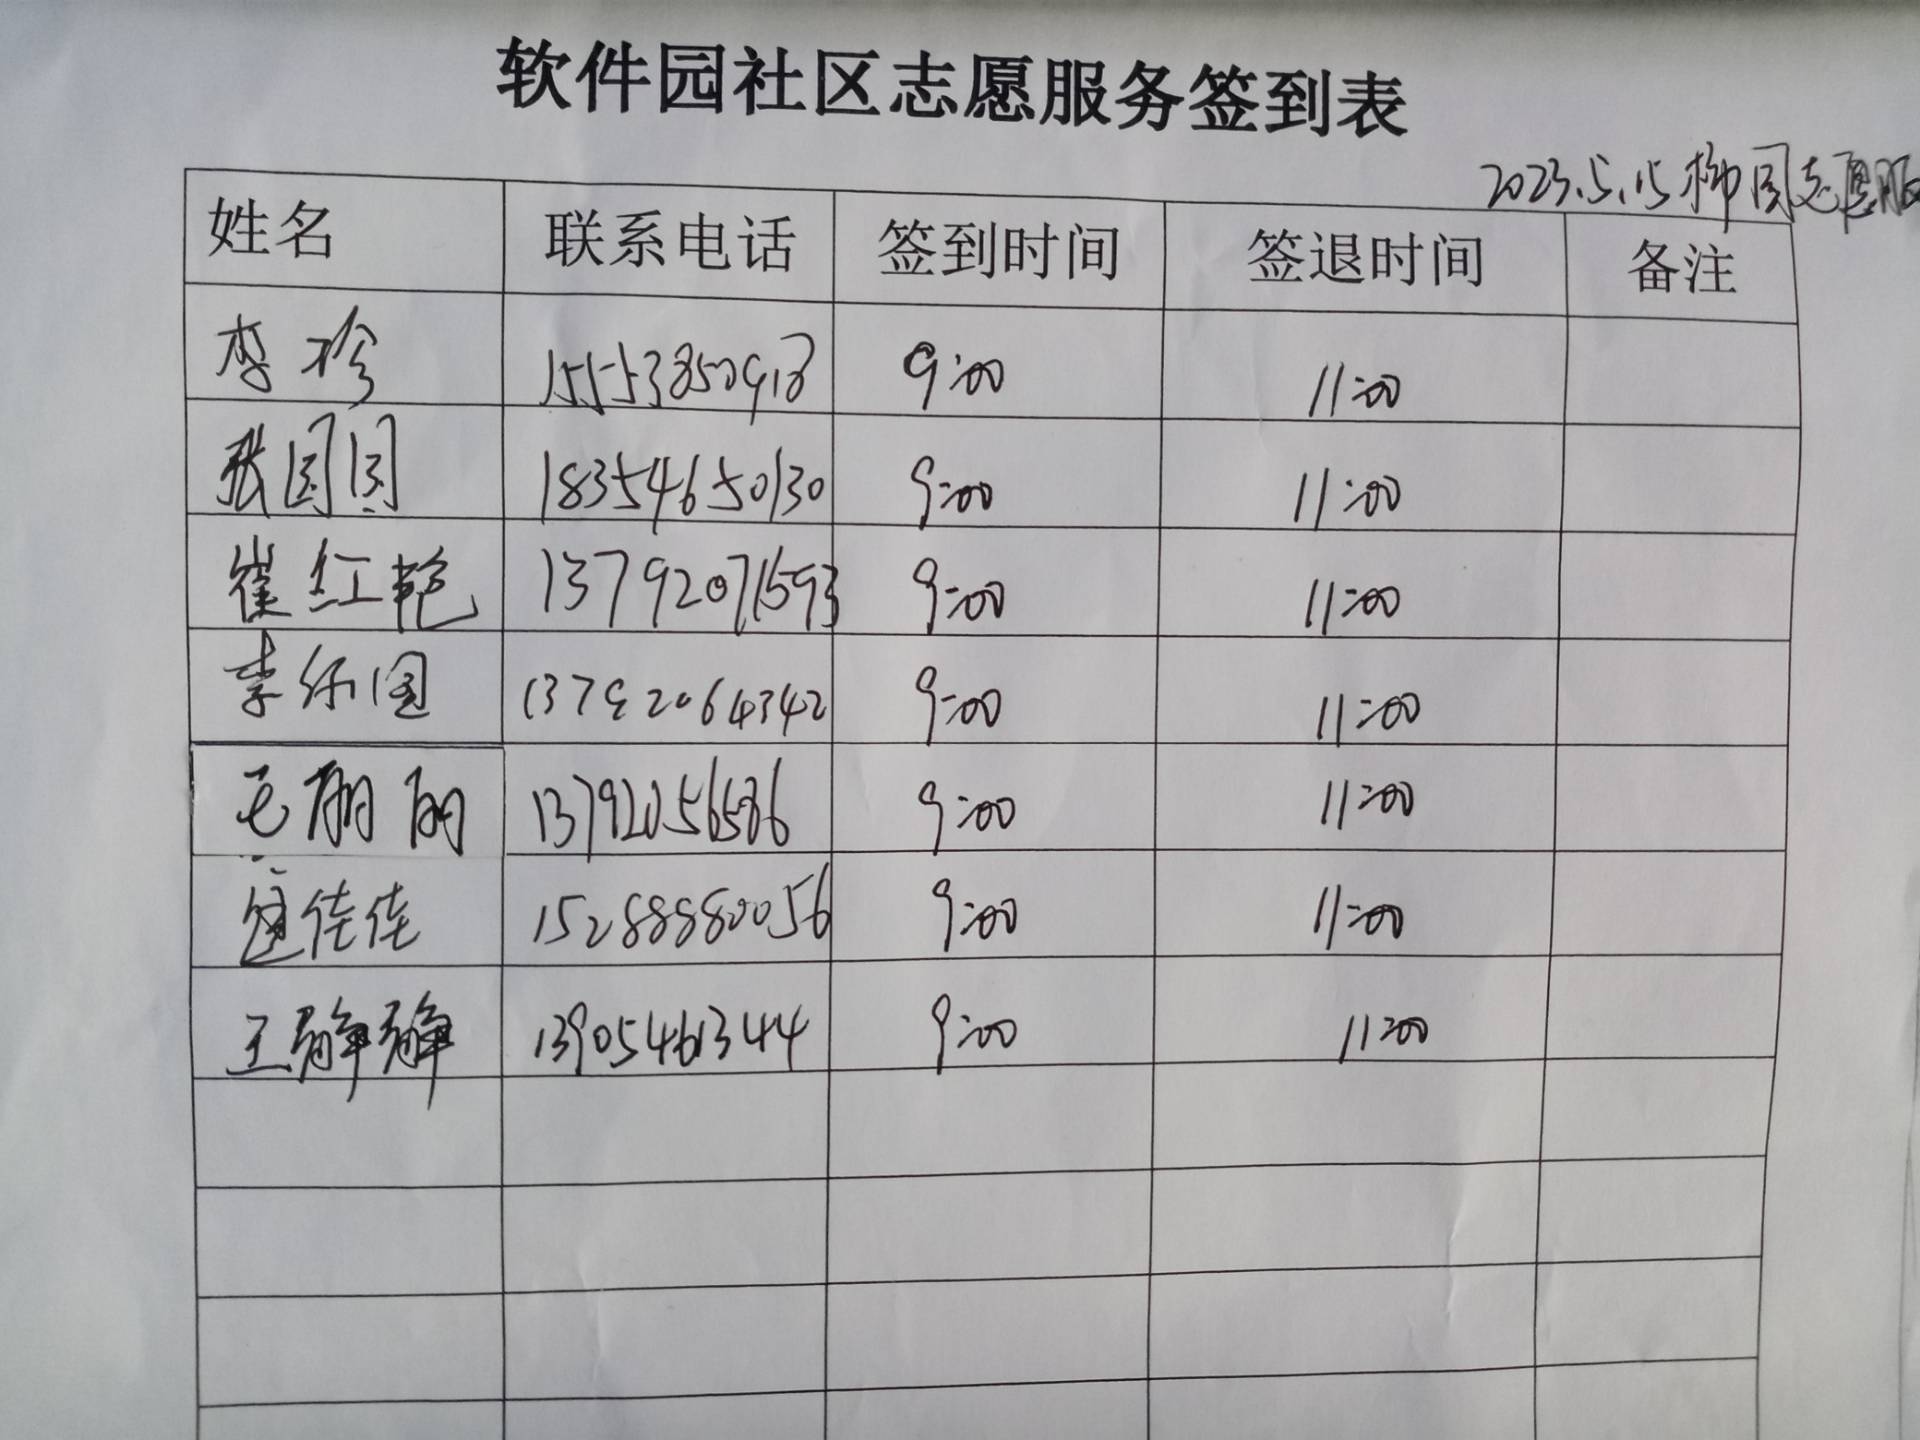 软件园社区志愿服务签到表
2023.5.15 柳园志愿服
姓名 联系电话 签到时间 签退时间 备注
李珍 15553850918 9:00 11:00
张园园 18354650130 9:00 11:00
崔红艳 13792071593 9:00 11:00
李 13792064342 9:00 11:00
毛丽丽 13792056586 9:00 11:00
佳佳 15288880056 9:00 11:00
王静静 13905461344 9:00 11:00